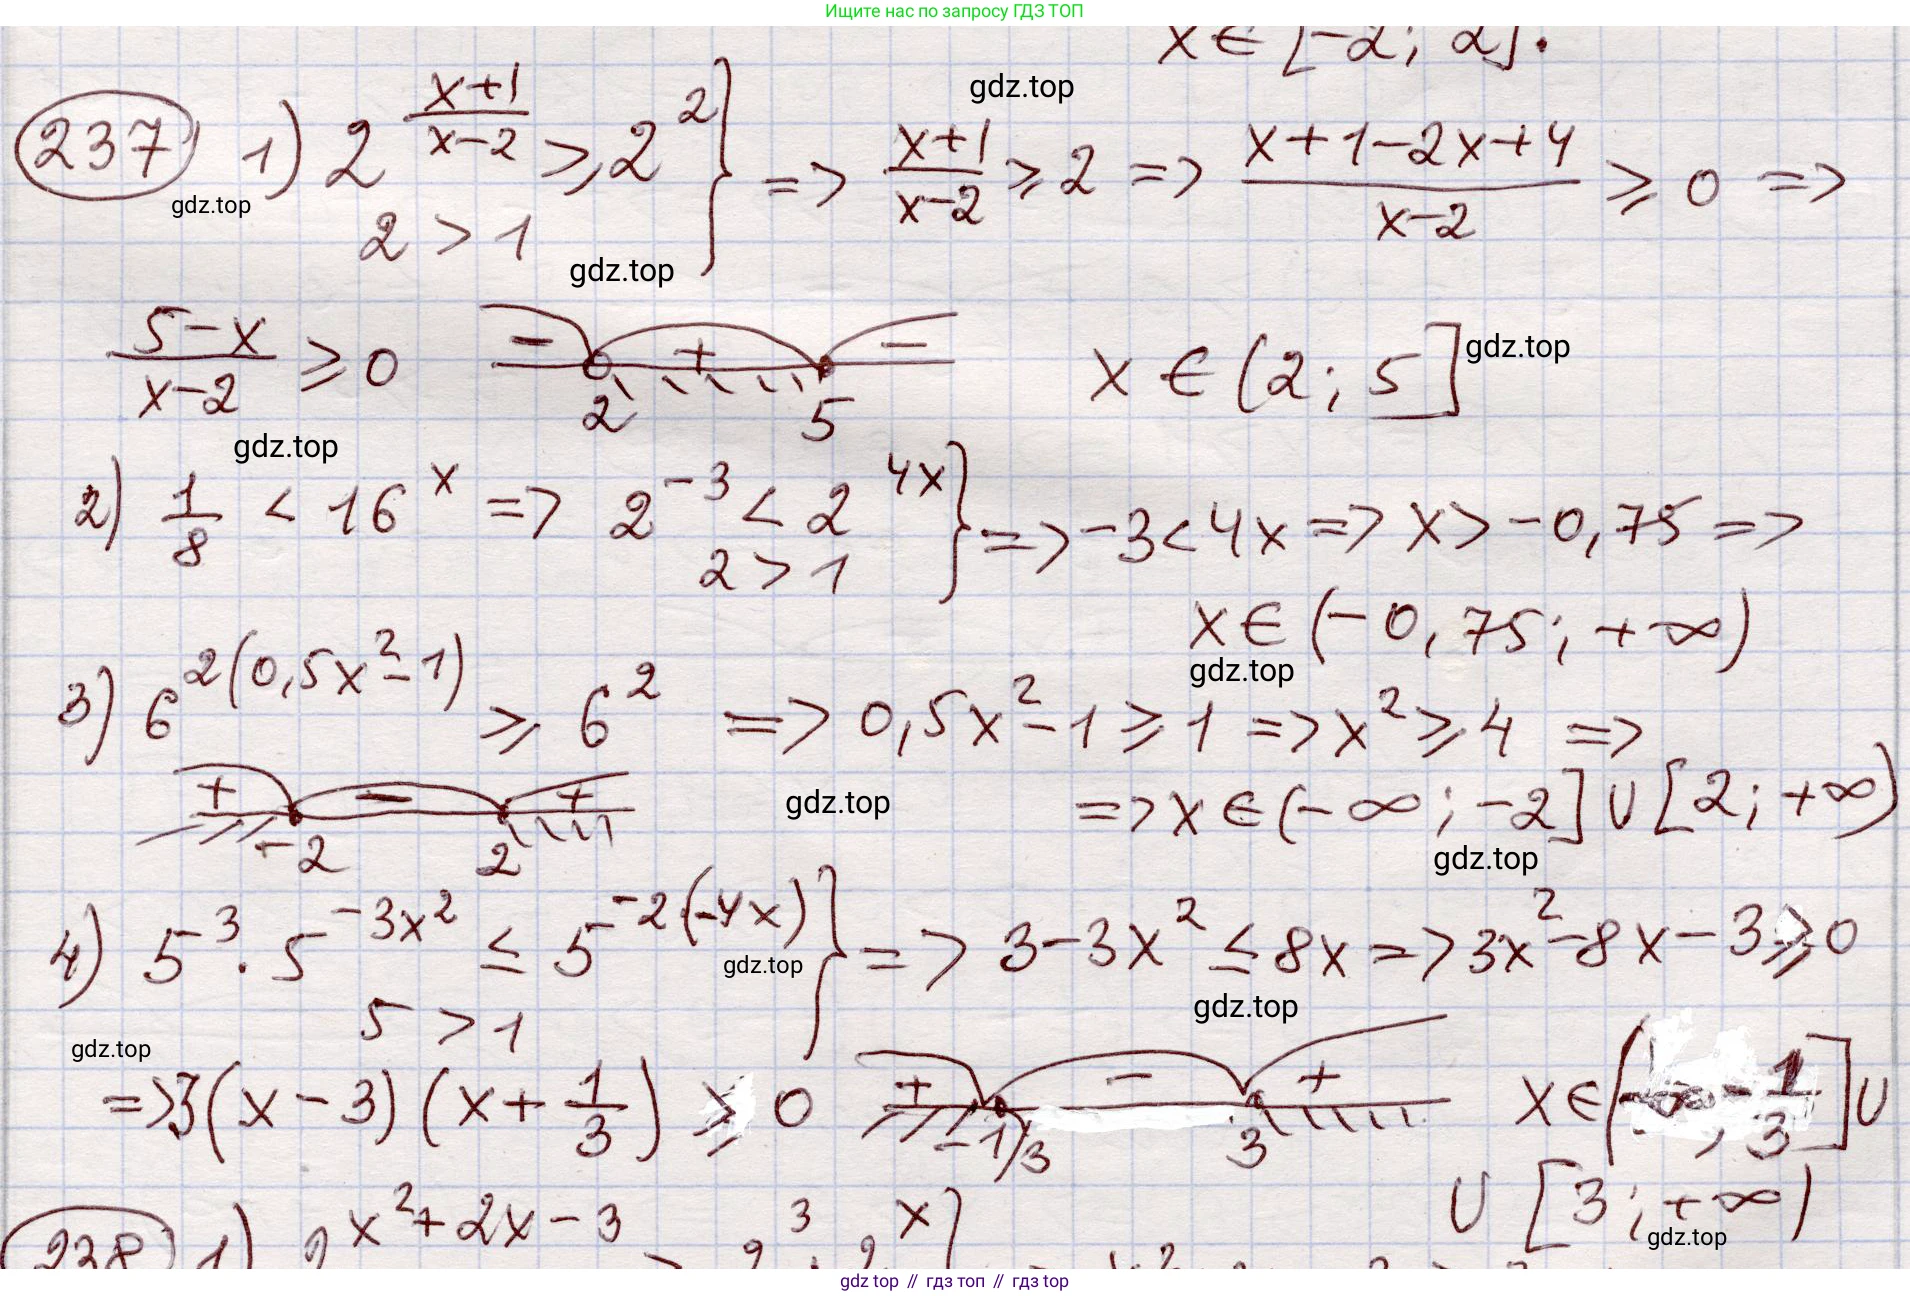 Ищите нас по запросу ГДЗ ТОП
x ∈ [-2; 2].
gdz.top
237 1) 2^((x+1)/(x-2)) ⩾ 2^2 } => (x+1)/(x-2) ⩾ 2 => (x+1-2x+4)/(x-2) ⩾ 0 =>
gdz.top
2 > 1
gdz.top
(5-x)/(x-2) ⩾ 0 - + - 2 5 x ∈ (2; 5]
gdz.top
gdz.top
2) 1/8 < 16^x => 2^(-3) < 2^(4x) } => -3 < 4x => x > -0,75 =>
2 > 1
x ∈ (-0,75; +∞)
gdz.top
3) 6^(2(0,5x^2-1)) ⩾ 6^2 => 0,5x^2-1 ⩾ 1 => x^2 ⩾ 4 =>
+ - + -2 2 => x ∈ (-∞; -2] ∪ [2; +∞)
gdz.top
gdz.top
4) 5^3 · 5^(-3x^2) ≤ 5^(-2(-4x)) } => 3-3x^2 ≤ 8x => 3x^2-8x-3 ⩾ 0
gdz.top
gdz.top
5 > 1
gdz.top
=> 3(x-3)(x+1/3) ⩾ 0 + - + -1/3 3 x ∈ (-∞; -1/3] ∪
∪ [3; +∞)
gdz.top
238 1) 2^(x^2+2x-3) 3 x
gdz top // гдз топ // гдз top